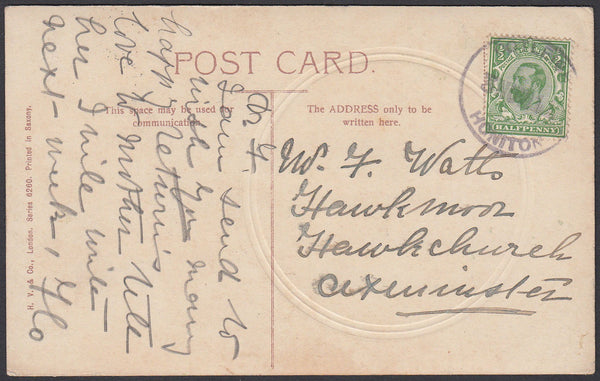 POST CARD.
This space may be used for
communication.
The ADDRESS only to be
written here.
H. V. & Co., London. Series 6260. Printed in Saxony.
HALFPENNY
HONITON
Dr F.
I am send to
wish you many
happy returns
love to Mother tell
her I will write
next week, Flo
Mr. F. Watts
Hawkmoor
Hawkchurch
Axminster